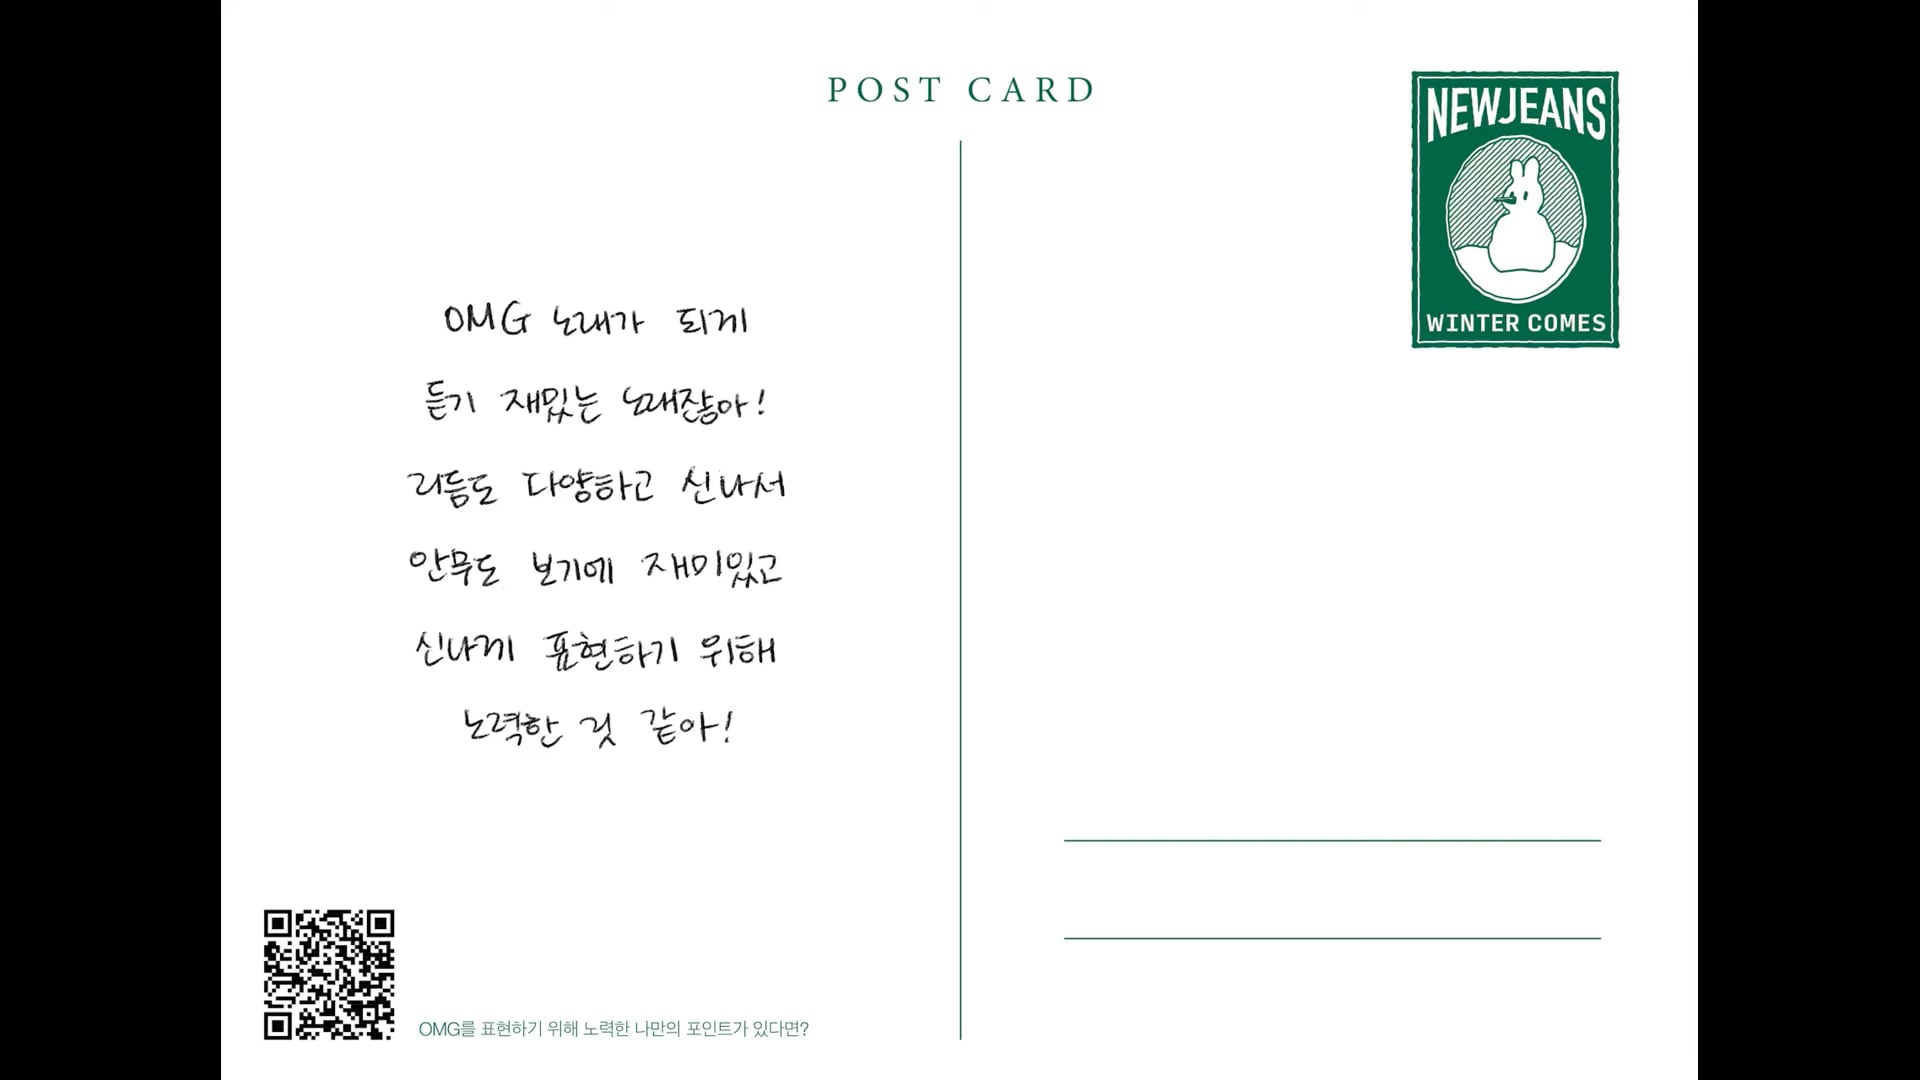 POST CARD
NEWJEANS
WINTER COMES
OMG 노래가 되게
듣기 재밌는 노래잖아!
리듬도 다양하고 신나서
안무도 보기에 재미있고
신나게 표현하기 위해
노력한 것 같아!
OMG를 표현하기 위해 노력한 나만의 포인트가 있다면?